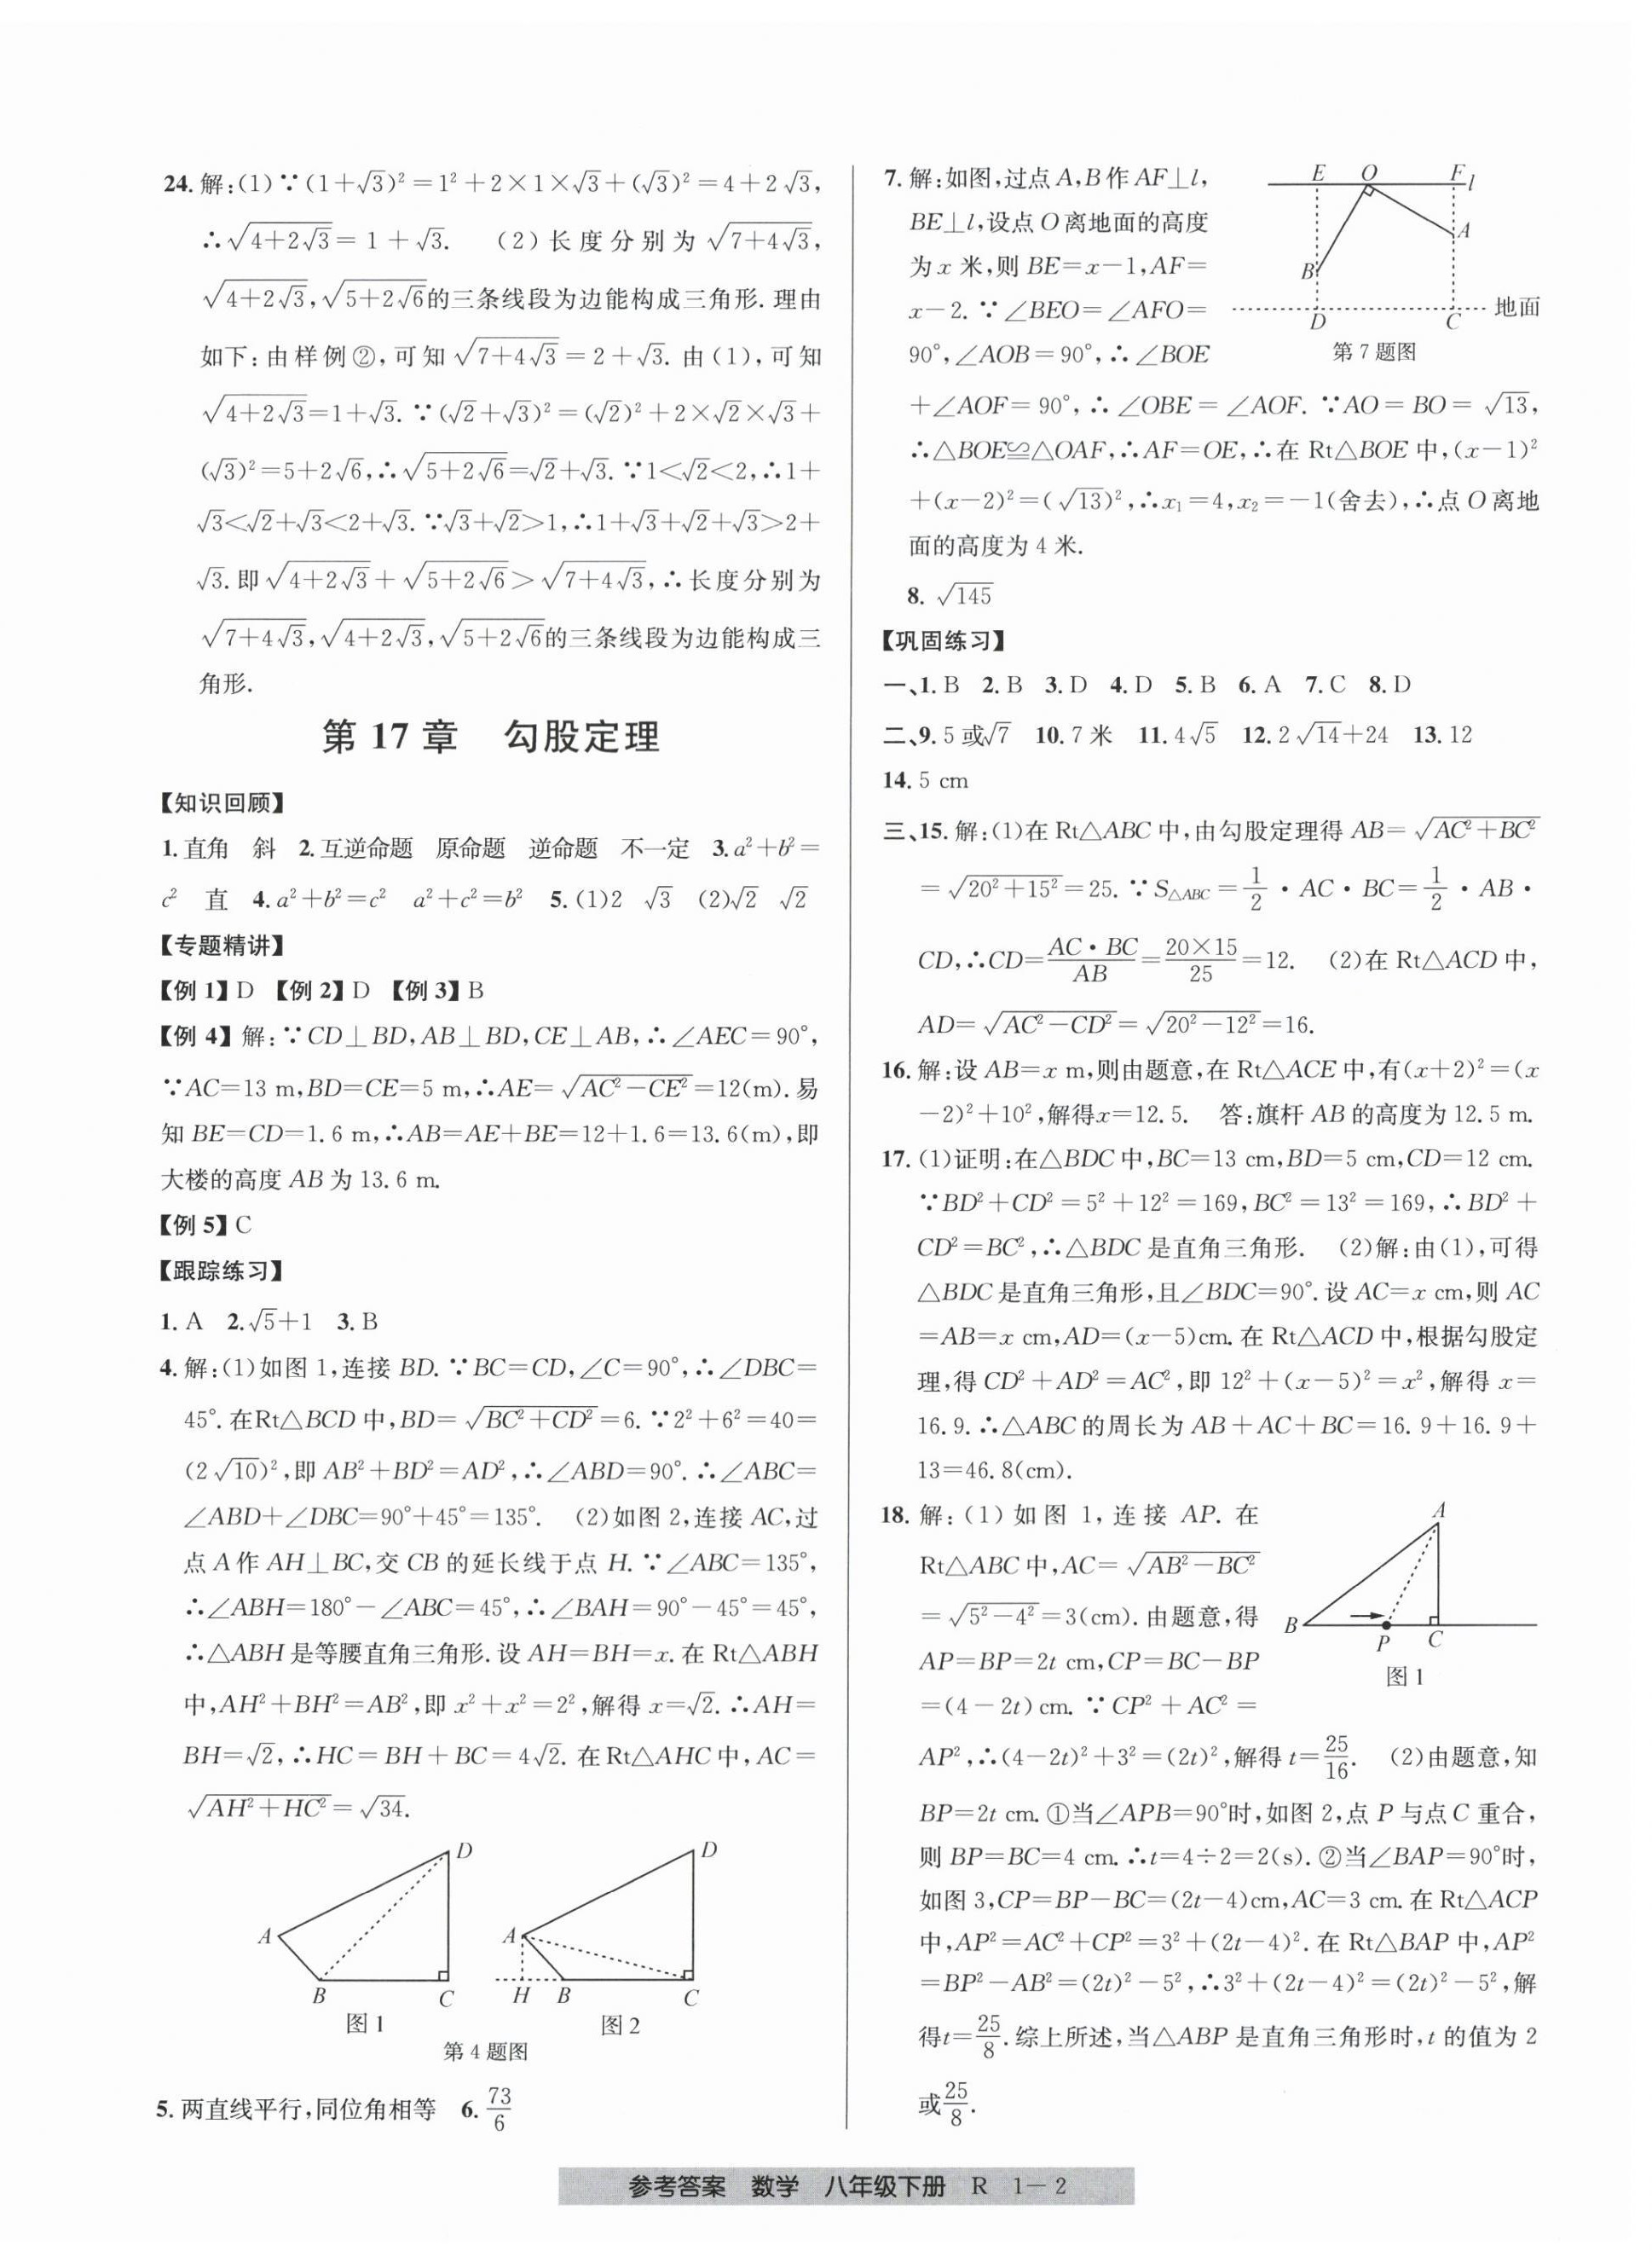 24. 解:(1)∵(1+√3)²=1²+2×1×√3+(√3)²=4+2√3,
∴√(4+2√3)=1+√3. (2)长度分别为√(7+4√3),
√(4+2√3),√(5+2√6)的三条线段为边能构成三角形.理由
如下:由样例②,可知√(7+4√3)=2+√3.由(1),可知
√(4+2√3)=1+√3.∵(√2+√3)²=(√2)²+2×√2×√3+
(√3)²=5+2√6,∴√(5+2√6)=√2+√3.∵1<√2<2,∴1+
√3<√2+√3<2+√3.∵√3+√2>1,∴1+√3+√2+√3>2+
√3.即√(4+2√3)+√(5+2√6)>√(7+4√3),∴长度分别为
√(7+4√3),√(4+2√3),√(5+2√6)的三条线段为边能构成三
角形.
第 17 章 勾股定理
【知识回顾】
1.直角 斜 2.互逆命题 原命题 逆命题 不一定 3.a²+b²=
c² 直 4.a²+b²=c² a²+c²=b² 5.(1)2 √3 (2)√2 √2
【专题精讲】
【例 1】D 【例 2】D 【例 3】B
【例 4】解:∵CD⊥BD,AB⊥BD,CE⊥AB,∴∠AEC=90°,
∵AC=13 m,BD=CE=5 m,∴AE=√(AC²-CE²)=12(m).易
知BE=CD=1.6 m,∴AB=AE+BE=12+1.6=13.6(m),即
大楼的高度AB为13.6 m.
【例 5】C
【跟踪练习】
1. A 2.√5+1 3. B
4. 解:(1)如图1,连接BD.∵BC=CD,∠C=90°,∴∠DBC=
45°.在Rt△BCD中,BD=√(BC²+CD²)=6.∵2²+6²=40=
(2√10)²,即AB²+BD²=AD²,∴∠ABD=90°.∴∠ABC=
∠ABD+∠DBC=90°+45°=135°. (2)如图2,连接AC,过
点A作AH⊥BC,交CB的延长线于点H.∵∠ABC=135°,
∴∠ABH=180°-∠ABC=45°,∴∠BAH=90°-45°=45°,
∴△ABH是等腰直角三角形.设AH=BH=x.在Rt△ABH
中,AH²+BH²=AB²,即x²+x²=2²,解得x=√2.∴AH=
BH=√2,∴HC=BH+BC=4√2.在Rt△AHC中,AC=
√(AH²+HC²)=√34.
D
A
B
C
图1
D
A
H B
C
图2
第4题图
5. 两直线平行,同位角相等 6. 73/6
7. 解:如图,过点A,B作AF⊥l,
BE⊥l,设点O离地面的高度
为x米,则BE=x-1,AF=
x-2.∵∠BEO=∠AFO=
90°,∠AOB=90°,∴∠BOE
E O F l
A
B
D C 地面
第7题图
+∠AOF=90°,∴∠OBE=∠AOF.∵AO=BO=√13,
∴△BOE≌△OAF,∴AF=OE,∴在Rt△BOE中,(x-1)²
+(x-2)²=(√13)²,∴x₁=4,x₂=-1(舍去),∴点O离地
面的高度为4米.
8. √145
【巩固练习】
一、1. B 2. B 3. D 4. D 5. B 6. A 7. C 8. D
二、9. 5或√7 10. 7米 11. 4√5 12. 2√14+24 13. 12
14. 5 cm
三、15. 解:(1)在Rt△ABC中,由勾股定理得AB=√(AC²+BC²)
=√(20²+15²)=25.∵S△ABC=1/2·AC·BC=1/2·AB·
CD,∴CD=AC·BC/AB=20×15/25=12. (2)在Rt△ACD中,
AD=√(AC²-CD²)=√(20²-12²)=16.
16. 解:设AB=x m,则由题意,在Rt△ACE中,有(x+2)²=(x
-2)²+10²,解得x=12.5. 答:旗杆AB的高度为12.5 m.
17. (1)证明:在△BDC中,BC=13 cm,BD=5 cm,CD=12 cm.
∵BD²+CD²=5²+12²=169,BC²=13²=169,∴BD²+
CD²=BC²,∴△BDC是直角三角形. (2)解:由(1),可得
△BDC是直角三角形,且∠BDC=90°.设AC=x cm,则AC
=AB=x cm,AD=(x-5)cm.在Rt△ACD中,根据勾股定
理,得CD²+AD²=AC²,即12²+(x-5)²=x²,解得x=
16.9.∴△ABC的周长为AB+AC+BC=16.9+16.9+
13=46.8(cm).
18. 解:(1)如图1,连接AP.在
Rt△ABC中,AC=√(AB²-BC²)
=√(5²-4²)=3(cm).由题意,得
AP=BP=2t cm,CP=BC-BP
=(4-2t)cm.∵CP²+AC²=
A
B
P C
图1
AP²,∴(4-2t)²+3²=(2t)²,解得t=25/16. (2)由题意,知
BP=2t cm.①当∠APB=90°时,如图2,点P与点C重合,
则BP=BC=4 cm.∴t=4÷2=2(s).②当∠BAP=90°时,
如图3,CP=BP-BC=(2t-4)cm,AC=3 cm.在Rt△ACP
中,AP²=AC²+CP²=3²+(2t-4)².在Rt△BAP中,AP²
=BP²-AB²=(2t)²-5²,∴3²+(2t-4)²=(2t)²-5²,解
得t=25/8.综上所述,当△ABP是直角三角形时,t的值为2
或25/8.
参考答案 数学 八年级下册 R 1-2